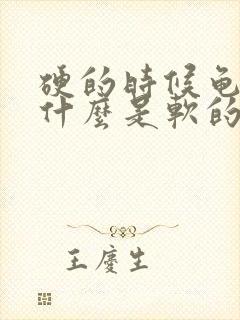 硬的時候龜
什麼是軟的
王慶生